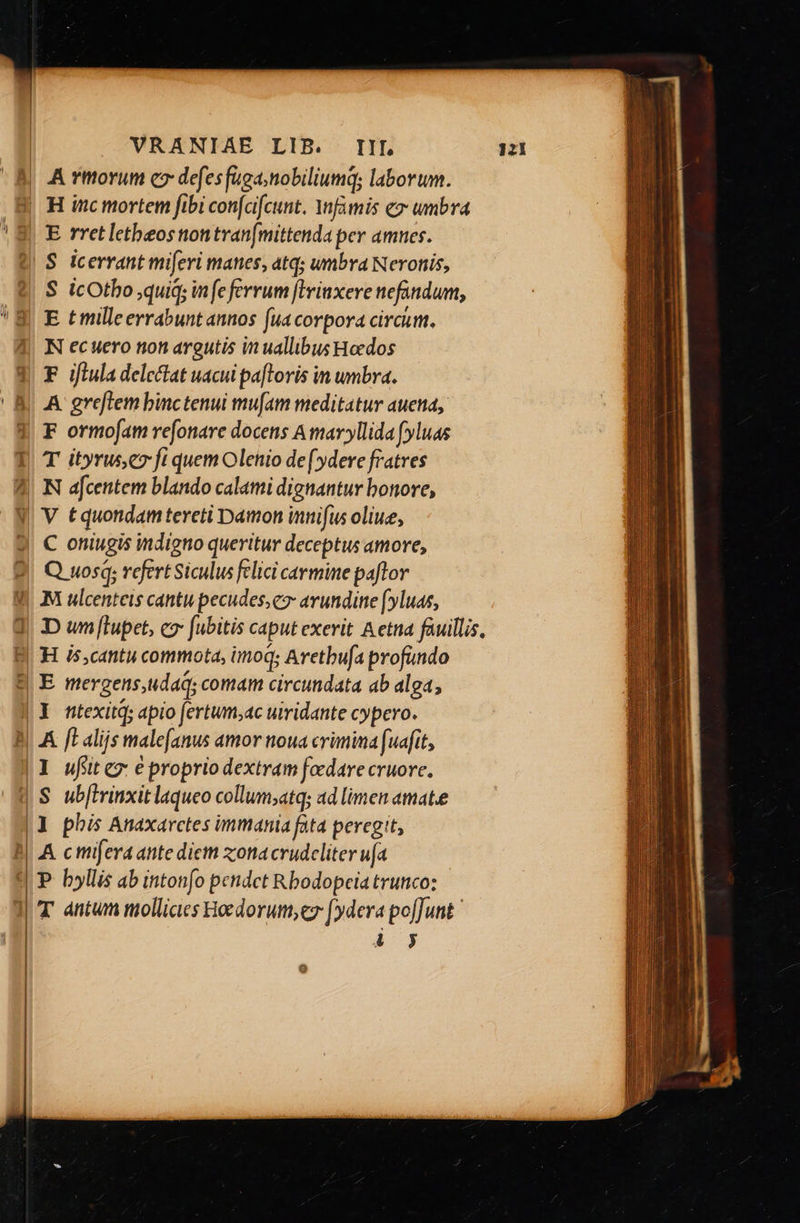 VRANIAE LIB. III. 121
A rmorum et defes fuga, nobiliumq; laborum.
H inc mortem sibi consciscunt. Infamis et umbra
E rret lethæos non transmittenda per amnes.
S ic errant miseri manes, atq; umbra Neronis,
S ic Otho, quiq; in se ferrum strinxere nefandum,
E t mille errabunt annos sua corpora circum.
N ec uero non argutis in uallibus Hœdos
F istula delectat uacui pastoris in umbra.
A grestem hinc tenui musam meditatur auena,
F ormosam resonare docens Amaryllida syluas
T ityrus, et si quem Olenio de sydere fratres
N ascentem blando calami dignantur honore,
V t quondam tereti Damon innisus oliuæ,
C oniugis indigno queritur deceptus amore,
Q uosq; refert Siculus felici carmine pastor
M ulcenteis cantu pecudes, et arundine syluas,
D um stupet, et subitis caput exerit Aetna fauillis.
H is, cantu commota, imoq; Arethusa profundo
E mergens, udaq; comam circundata ab alga,
I ntexitq; apio sertum, ac uiridante cypero.
A st alijs malesanus amor noua crimina suasit,
I ussit et è proprio dextram fœdare cruore.
S ubstrinxit laqueo collum, atq; ad limen amatæ
I phis Anaxarctes immania fata peregit,
A c misera ante diem zona crudeliter usa
P hyllis ab intonso pendet Rhodopeia trunco:
T antum mollicies Hœdorum, et sydera possunt
i ij